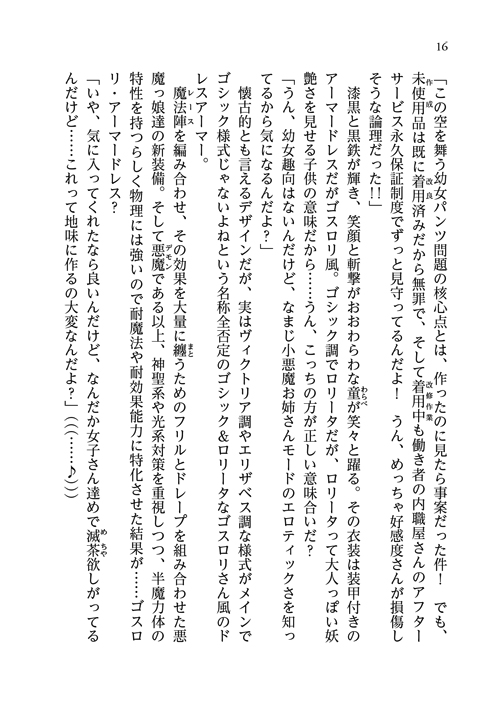 16
「この空を舞う幼女パンツ問題の核心点とは、作ったのに見たら事案だった件！　でも、
未使用品は既に着用済みだから無罪で、そして着用中も働き者の内職屋さんのアフター
サービス永久保証制度でずっと見守ってるんだよ！　うん、めっちゃ好感度さんが損傷し
そうな論理だった!!」
　漆黒と黒鉄が輝き、笑顔と斬撃がおおわらわな童が笑々と躍る。その衣装は装甲付きの
アーマードレスだがゴスロリ風。ゴシック調でロリータだが、ロリータって大人っぽい妖
艶さを見せる子供の意味だから……うん、こっちの方が正しい意味合いだ？
「うん、幼女趣向はないんだけど、なまじ小悪魔お姉さんモードのエロティックさを知っ
てるから気になるんだよ？」
　懐古的とも言えるデザインだが、実はヴィクトリア調やエリザベス調な様式がメインで
ゴシック様式じゃないよねという名称全否定のゴシック＆ロリータなゴスロリさん風のド
レスアーマー。
　魔法陣を編み合わせ、その効果を大量に纏うためのフリルとドレープを組み合わせた悪
魔っ娘達の新装備。そして悪魔である以上、神聖系や光系対策を重視しつつ、半魔力体の
特性を持つらしく物理には強いので耐魔法や耐効果能力に特化させた結果が……ゴスロ
リ・アーマードレス？
「いや、気に入ってくれたなら良いんだけど、なんだか女子さん達めで滅茶欲しがってる
んだけど……これって地味に作るの大変なんだよ？」（（（……♪）））
作成
改良
改修作業
わらべ
レース
まと
デモン
めちゃ